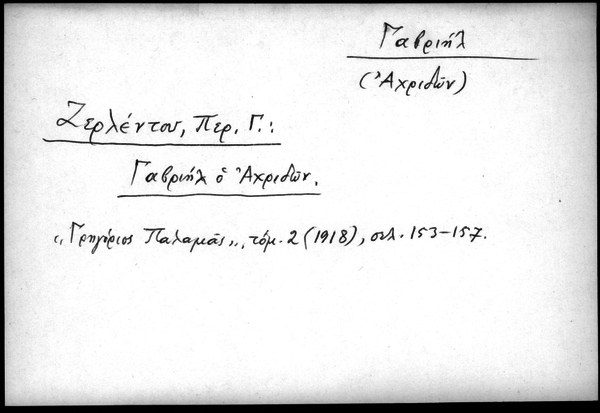 Γαβριήλ
(Ἀχριδῶν)
Ζερλέντου, Περ. Γ.:
Γαβριήλ ὁ Ἀχριδῶν.
«Γρηγόριος Παλαμᾶς», τόμ. 2 (1918), σελ. 153-157.